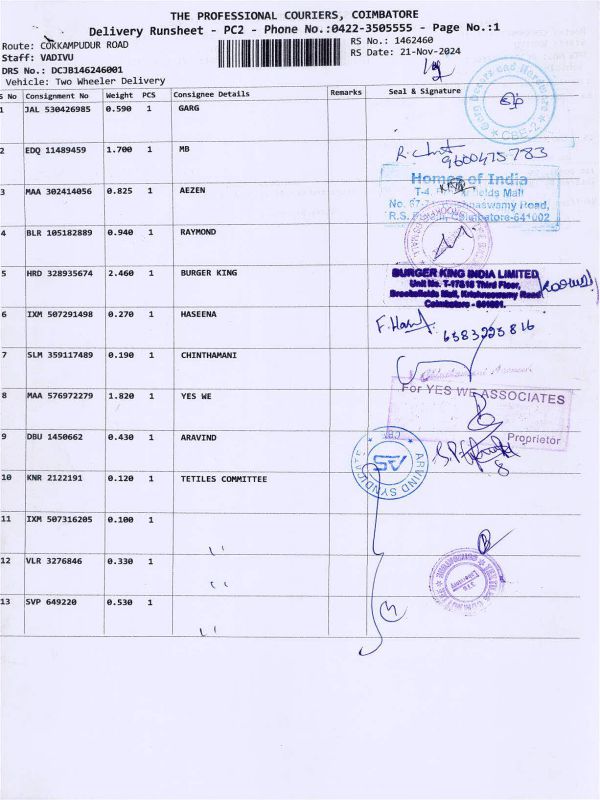 THE PROFESSIONAL COURIERS, COIMBATORE
Delivery Runsheet - PC2 - Phone No.:0422-3505555 - Page No.:1
Route: COKKAMPUDUR ROAD
RS No.: 1462460
Staff: VADIVU
RS Date: 21-Nov-2024
DRS No.: DCJB146246001
Vehicle: Two Wheeler Delivery
S No Consignment No Weight PCS Consignee Details Remarks Seal & Signature
1 JAL 530426985 0.590 1 GARG
CBE-2
2 EDQ 11489459 1.700 1 MB
9600475783
Homes of India
3 MAA 302414056 0.825 1 AEZEN
R.S. Coimbatore-641002
4 BLR 105182889 0.940 1 RAYMOND
5 HRD 328935674 2.460 1 BURGER KING
BURGER KING INDIA LIMITED
Unit No. T-17&18 Third Floor,
Brookefields Mall, Krishnaswamy Road
Coimbatore - 641001.
6 IXM 507291498 0.270 1 HASEENA
6383225816
7 SLM 359117489 0.190 1 CHINTHAMANI
8 MAA 576972279 1.820 1 YES WE
For YES WE ASSOCIATES
Proprietor
9 DBU 1450662 0.430 1 ARAVIND
10 KNR 2122191 0.120 1 TETILES COMMITTEE
11 IXM 507316205 0.100 1
12 VLR 3276846 0.330 1
13 SVP 649220 0.530 1